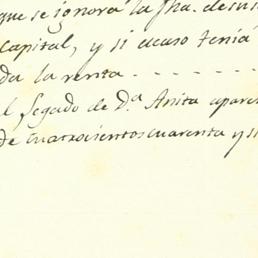 que se ignora la fha. de su
capital, y si acaso tenia
da la renta - - - - - - -
l legado de D.ª Anita apare
de cuatrocientos cuarenta y si